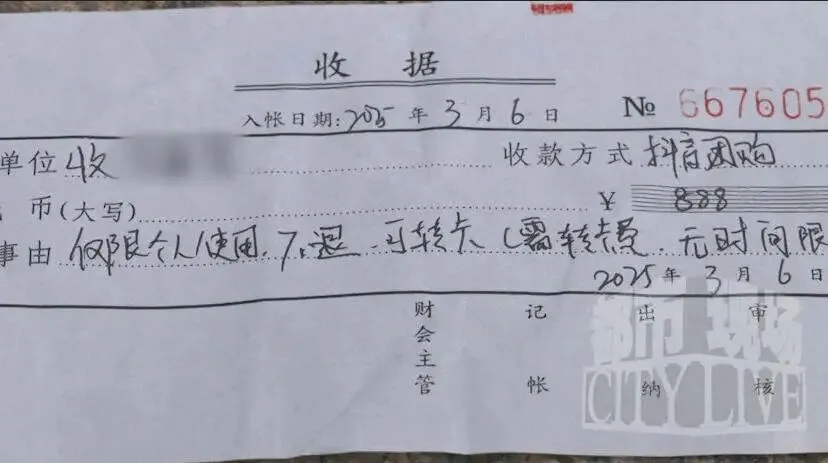 收 据
入帐日期: 2025 年 3 月 6 日 № 667605
单位 收 收款方式 抖音团购
币(大写) ¥ 888
事由 仅限个人使用,不退,可转卡(需转卡费,无时间限
2025 年 3 月 6 日
财会主管 记帐 出纳 审核
都市现场
CITY LIVE